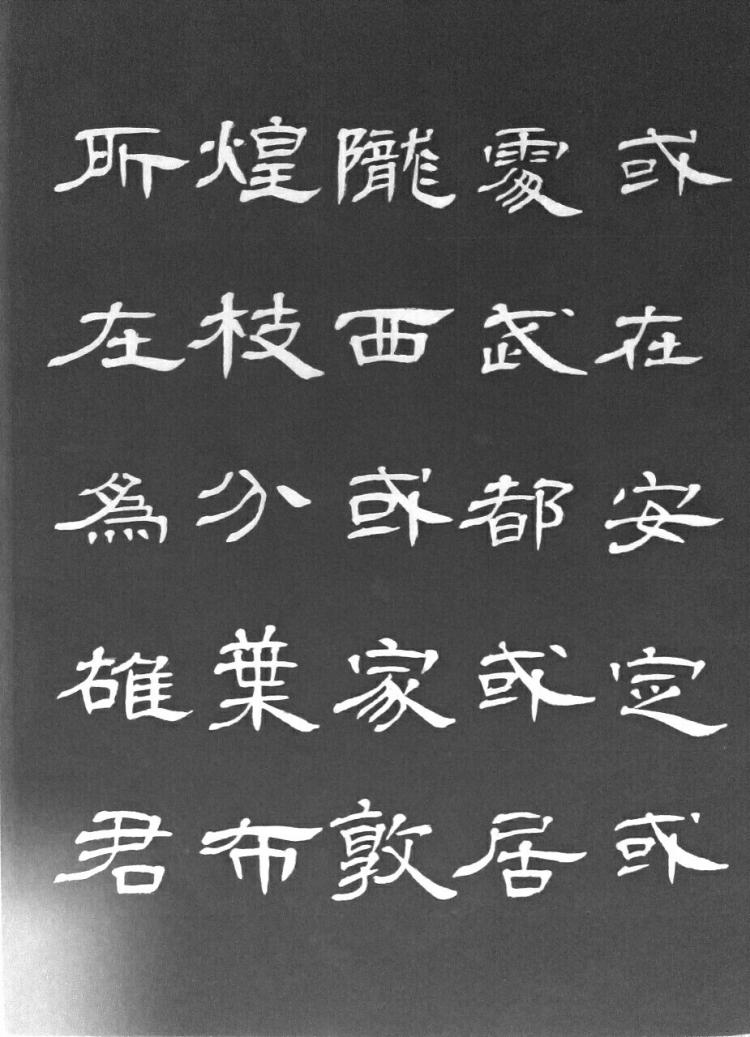 或在安定或
處武都或居
隴西或家敦
煌枝分葉布
所在為雄君